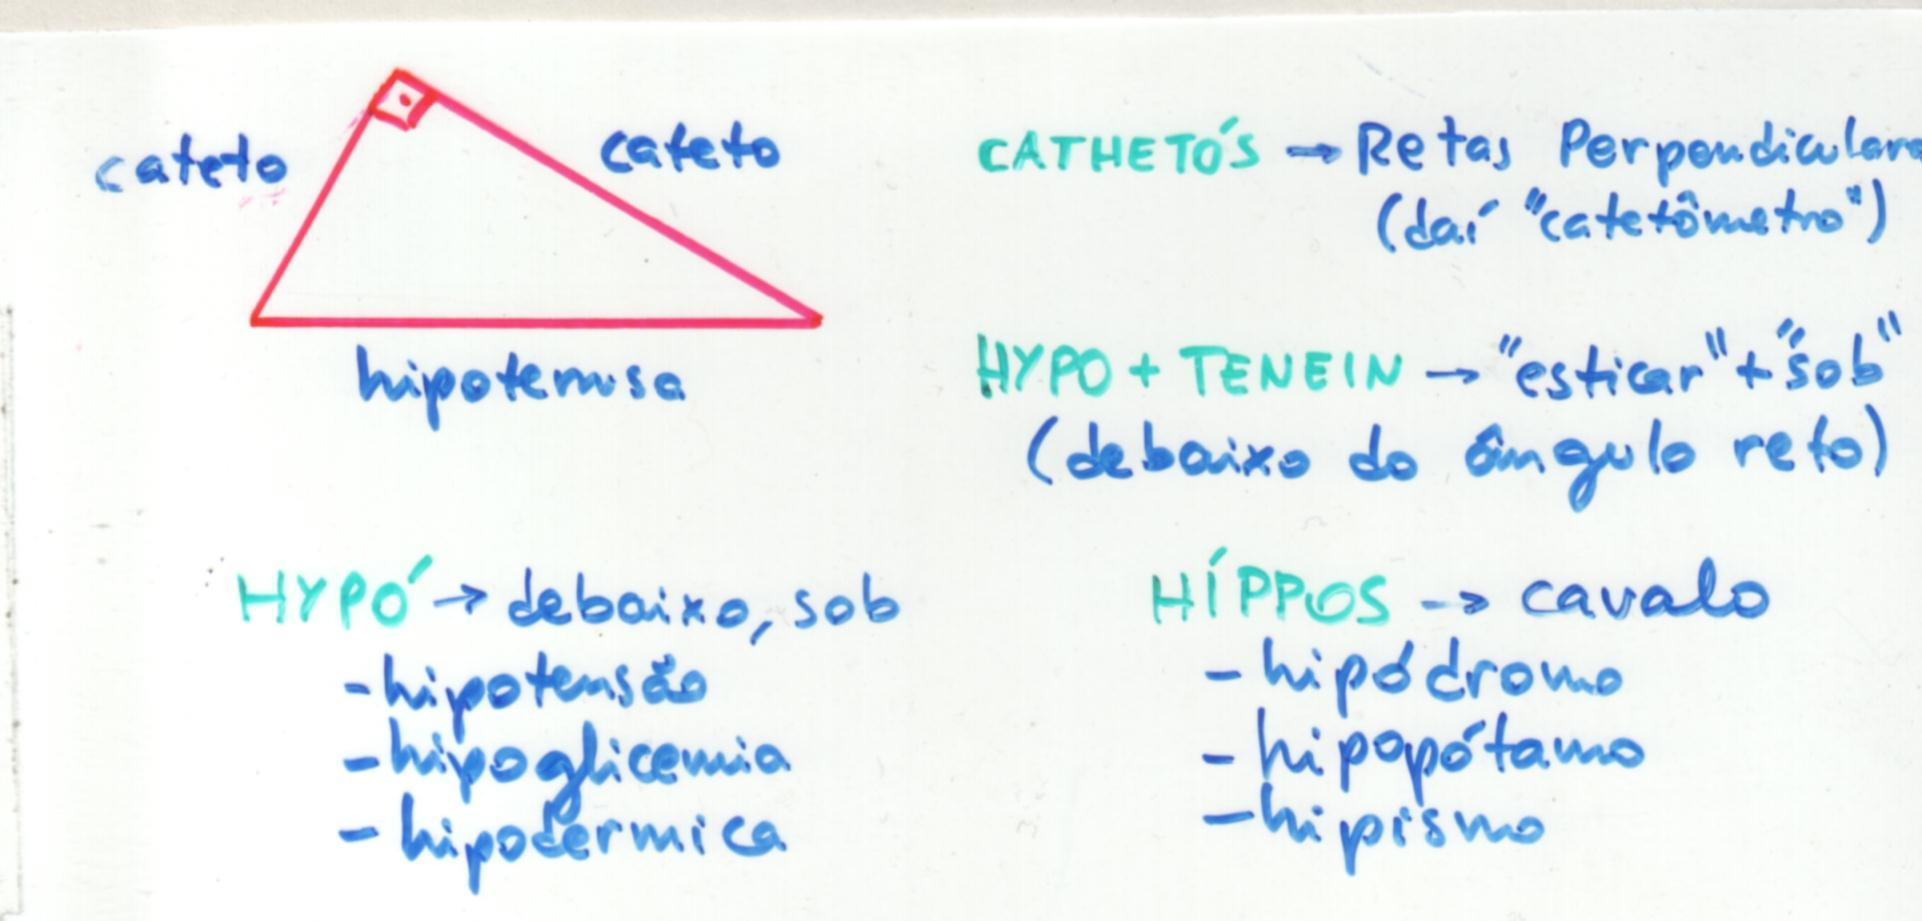 cateto
cateto
hipotenusa
CATHETÓS → Retas Perpendiculare
(daí "catetômetro")
HYPO + TENEIN → "esticar" + "sob"
(debaixo do ângulo reto)
HYPÓ → debaixo, sob
- hipotensão
- hipoglicemia
- hipodermica
HÍPPOS → cavalo
- hipódromo
- hipopótamo
- hipismo